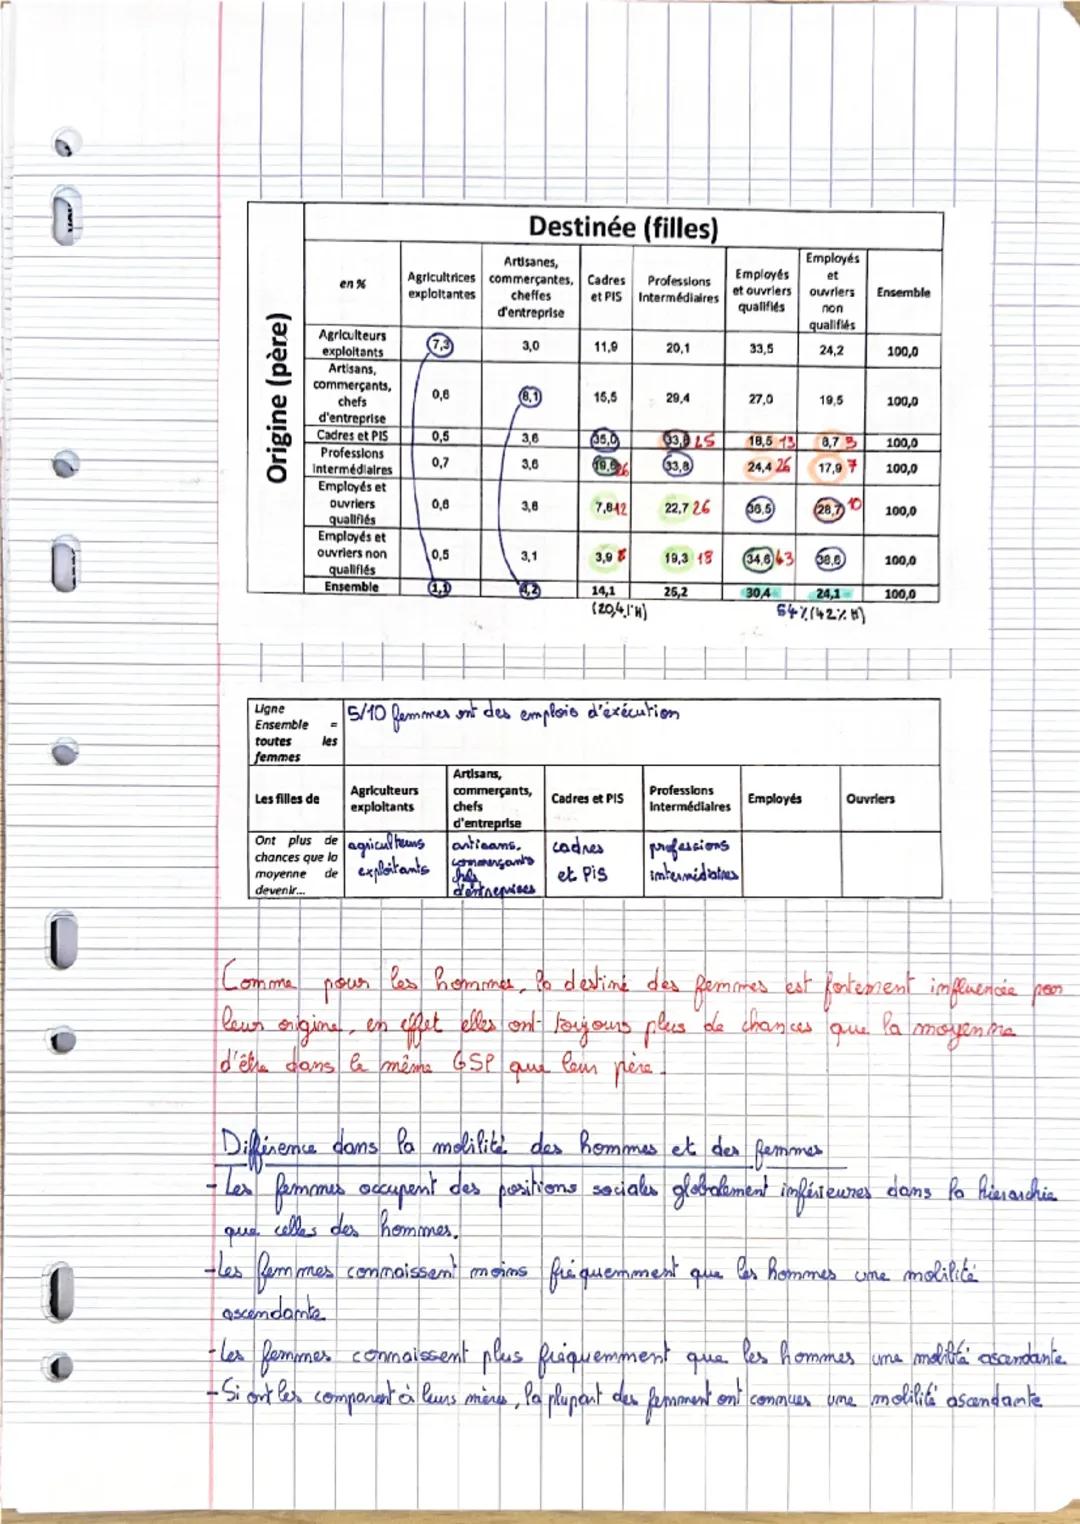 Destinée (filles)
Origine (père)
en % Agricultrices exploitantes Artisanes, commerçantes, cheffes d'entreprise Cadres et PIS Professions Intermédiaires Employés et ouvriers qualifiés Employés et ouvriers non qualifiés Ensemble
Agriculteurs exploitants 7,3 3,0 11,9 20,1 33,5 24,2 100,0
Artisans, commerçants, chefs d'entreprise 0,6 8,1 15,5 29,4 27,0 19,5 100,0
Cadres et PIS 0,5 3,6 35,0 33,8 25 18,5 13 8,7 100,0
Professions Intermédiaires 0,7 3,6 26 33,8 24,4 26 17,9 7 100,0
Employés et ouvriers qualifiés 0,6 3,8 7,8 12 22,7 26 36,5 28,7 10 100,0
Employés et ouvriers non qualifiés 0,5 3,1 3,9 8 19,3 18 34,6 63 38,6 100,0
Ensemble 1,1 4,2 14,1 25,2 30,4 24,1 100,0
54% (42% H)
Ligne Ensemble = toutes les femmes 5/10 femmes ont des emplois d'éxécution
Les filles de Agriculteurs exploitants Artisans, commerçants, chefs d'entreprise Cadres et PIS Professions Intermédiaires Employés Ouvriers
Ont plus de chances que la moyenne de devenir... agriculteurs exploitants artisans, commerçants chefs d'entreprises cadres et PIS professions intermédiaires
Comme pour les hommes, la destiné des femmes est fortement influencée par
leur origine, en effet elles ont toujours plus de chances que la moyenne
d'être dans le même GSP que leur père.
Différence dans la mobilité des hommes et des femmes
- Les femmes occupent des positions sociales globalement inférieures dans la hierarchie
que celles des hommes.
- Les femmes connaissent moins fréquemment que les hommes une mobilité
ascendante
- Les femmes connaissent plus fréquemment que les hommes une mobilité ascendante
- Si ont les comparent à leurs mères, la plupart des femment ont connues une mobilité ascendante